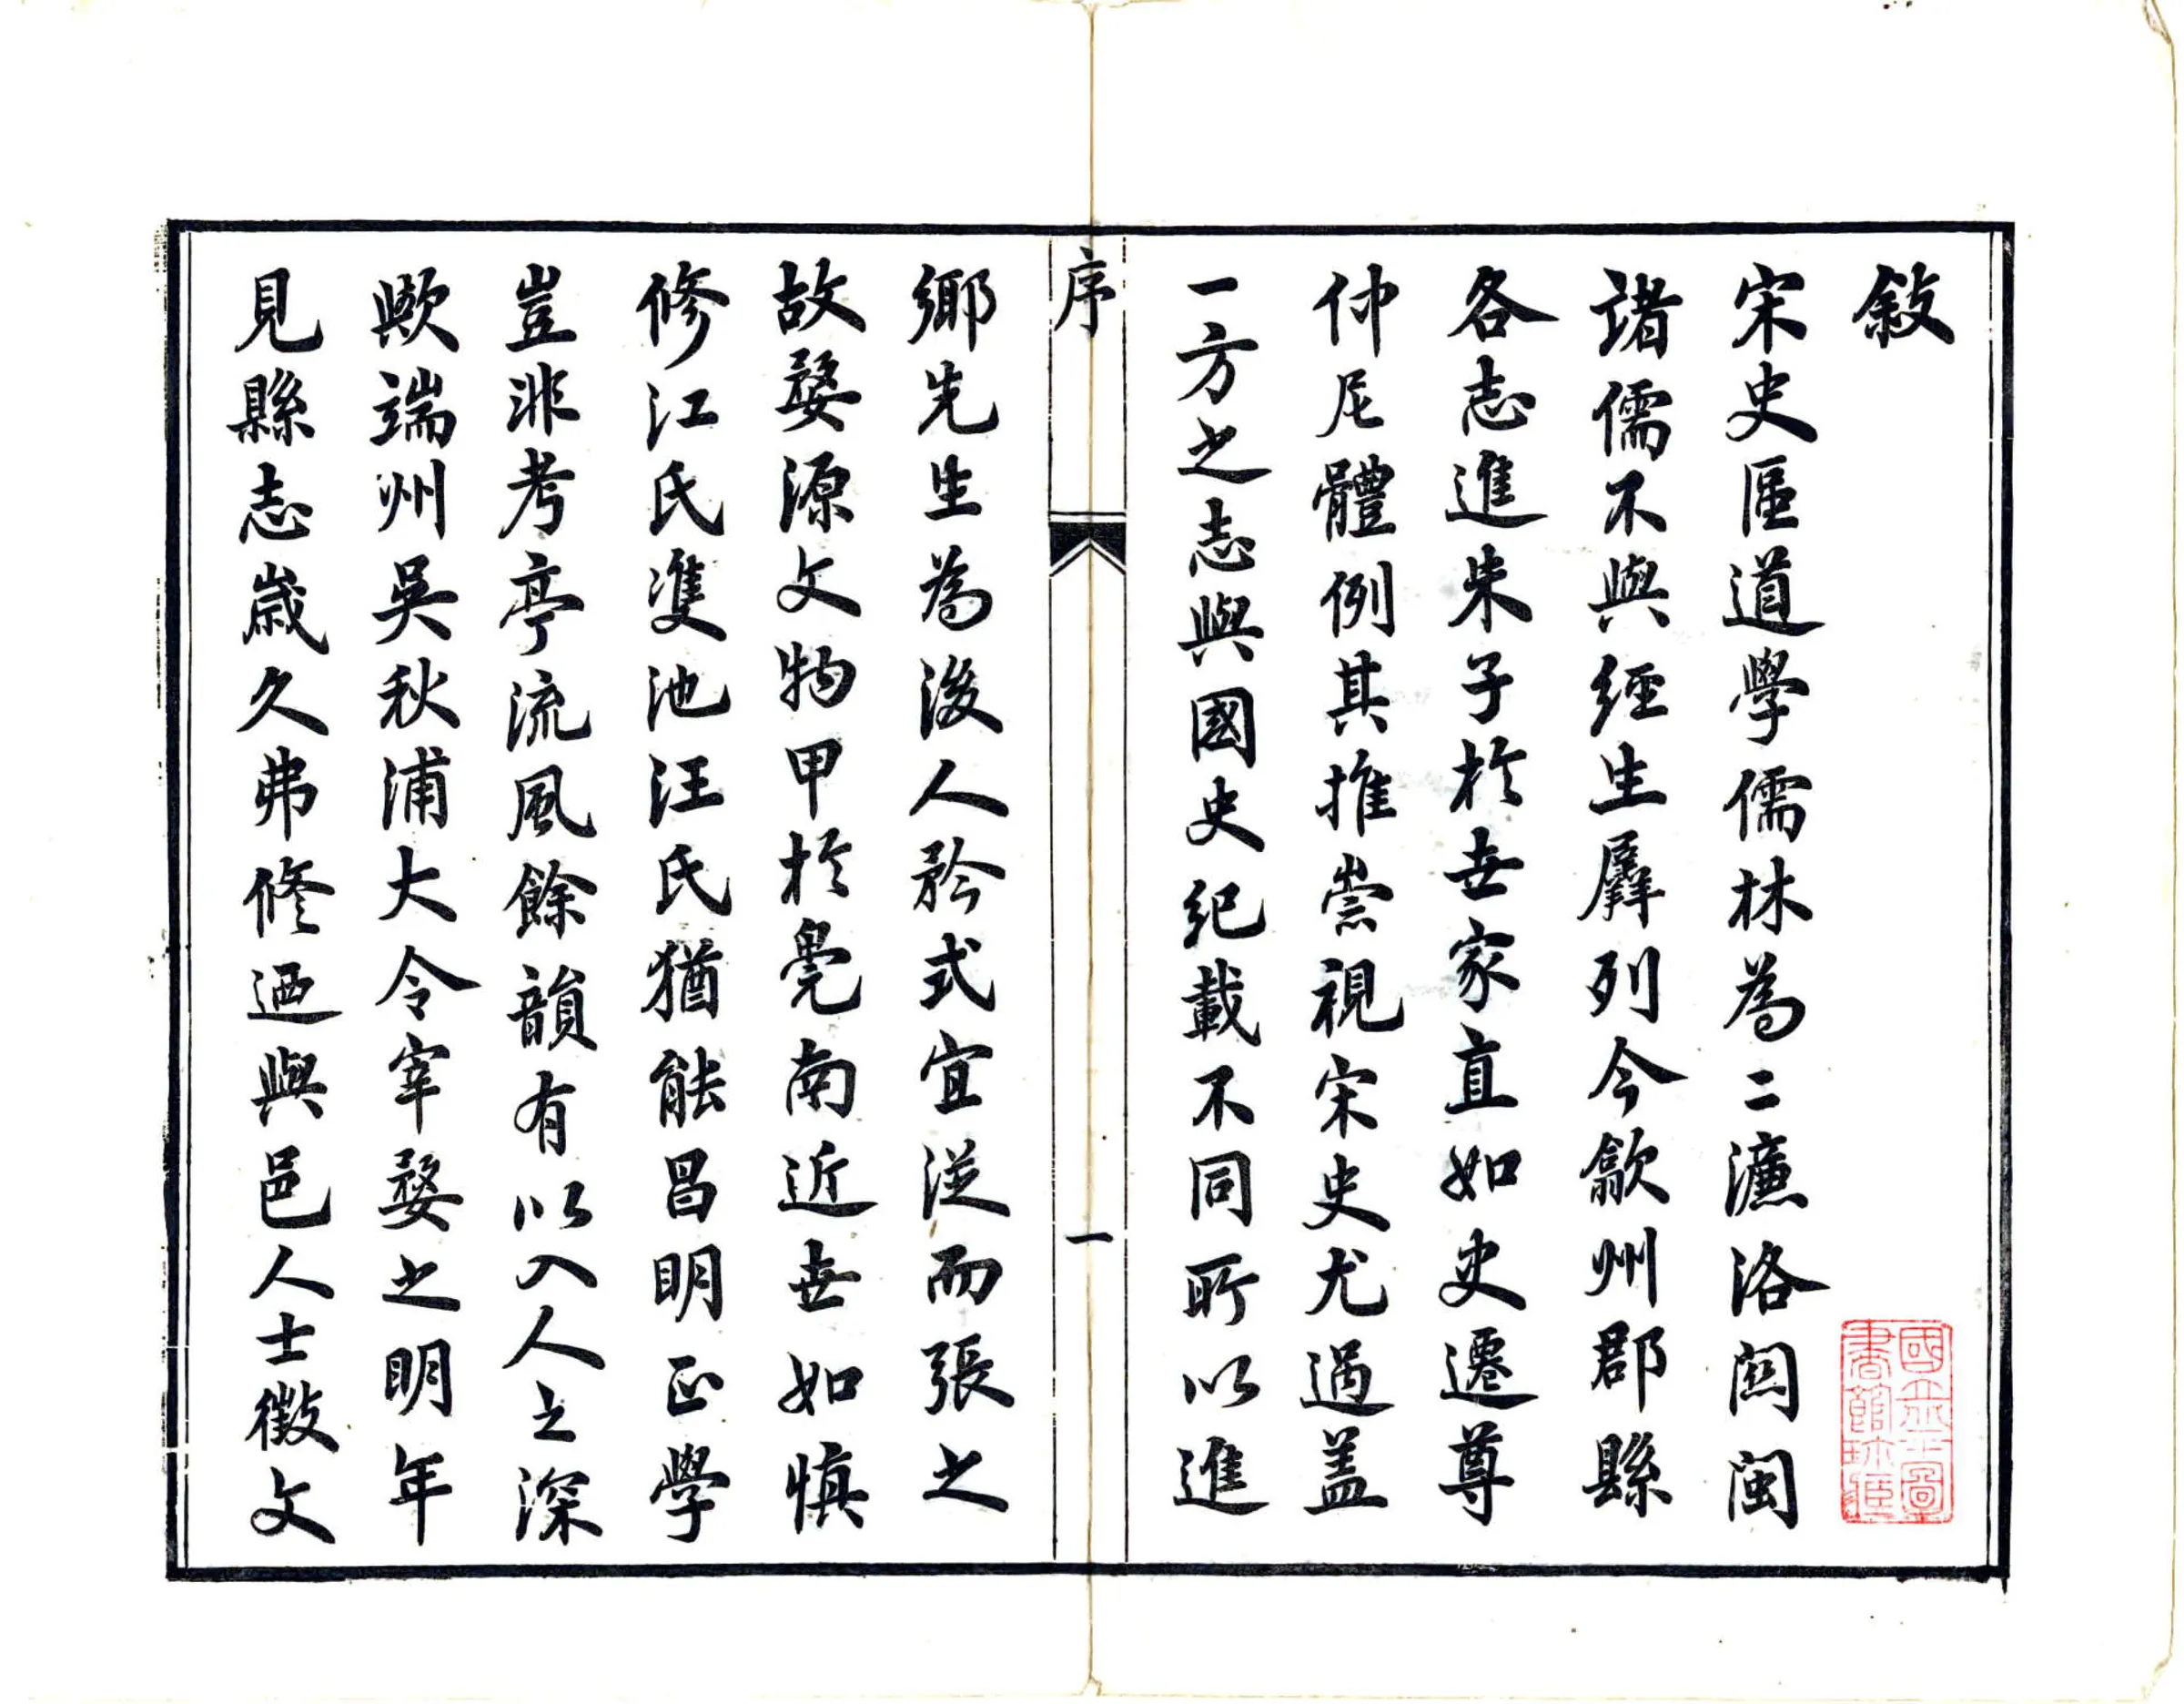 敍
宋史區道學儒林為二濂洛閩閩
諸儒不與經生羼列今歙州郡縣
各志進朱子於世家直如史遷尊
仲尼體例其推崇視宋史尤過蓋
一方之志與國史紀載不同所以進
序
一
鄉先生為後人矜式宜從而張之
故婺源文物甲於皖南近世如慎
修江氏雙池汪氏猶能昌明正學
豈非考亭流風餘韻有以入人之深
歟端州吳秋浦大令宰婺之明年
見縣志歲久弗修迺與邑人士徵文
國立圖
書館珍藏